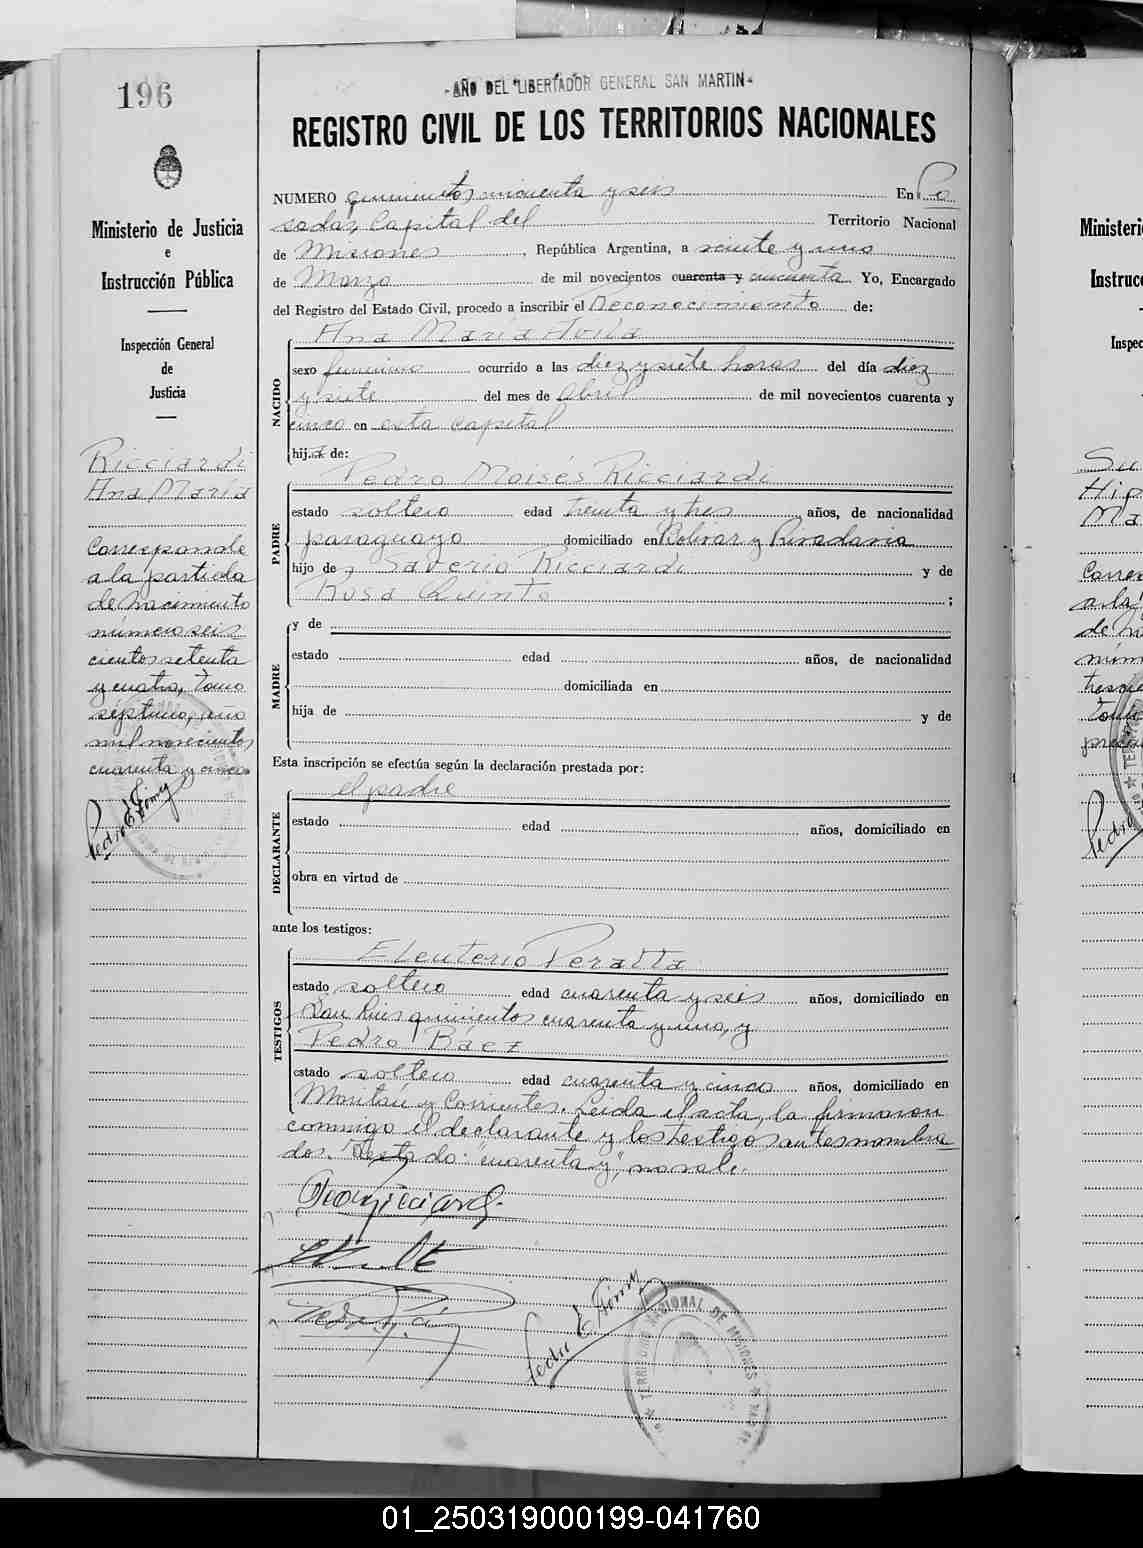 196
Ministerio de Justicia
e
Instrucción Pública
Inspección General
de
Justicia
Ricciardi
Ana María
Corresponde
a la partida
de nacimiento
número seis
cientos setenta
y cuatro, Tomo
séptimo, año
mil novecientos
cuarenta y cinco
Pedro E. Gómez
-AÑO DEL "LIBERTADOR GENERAL SAN MARTIN-
REGISTRO CIVIL DE LOS TERRITORIOS NACIONALES
NUMERO quinientos cincuenta y seis En Po
sadas, Capital del Territorio Nacional
de Misiones, República Argentina, a veinte y uno
de Marzo de mil novecientos cuarenta y cincuenta Yo, Encargado
del Registro del Estado Civil, procedo a inscribir el Reconocimiento de:
Ana María Avila
NACIDO
sexo femenino ocurrido a las diez y siete horas del día diez
y siete del mes de Abril de mil novecientos cuarenta y
cinco en esta capital
hija de:
Pedro Moisés Ricciardi
PADRE
estado soltero edad treinta y tres años, de nacionalidad
paraguayo domiciliado en Bolívar y Rivadavia
hijo de Saverio Ricciardi y de
Rosa Quinto ;
MADRE
y de
estado edad años, de nacionalidad
domiciliada en
hija de y de
Esta inscripción se efectúa según la declaración prestada por:
el padre
DECLARANTE
estado edad años, domiciliado en
obra en virtud de
ante los testigos:
Eleuterio Peralta
TESTIGOS
estado soltero edad cuarenta y seis años, domiciliado en
San Luis quinientos cuarenta y uno, y
Pedro Baez
estado soltero edad cuarenta y cinco años, domiciliado en
y Corrientes. Leida el acta, la firmaron
conmigo el declarante y los testigos antes nombra
dos. Testado: "cuarenta y", no vale.
Pedro E. Gómez
TERRITORIO NACIONAL DE MISIONES
Ministeri
Instruc
Inspec
Su
Hip
Ma
Corres
a la
de n
núm
tresci
Tomo
Pedro
01_250319000199-041760